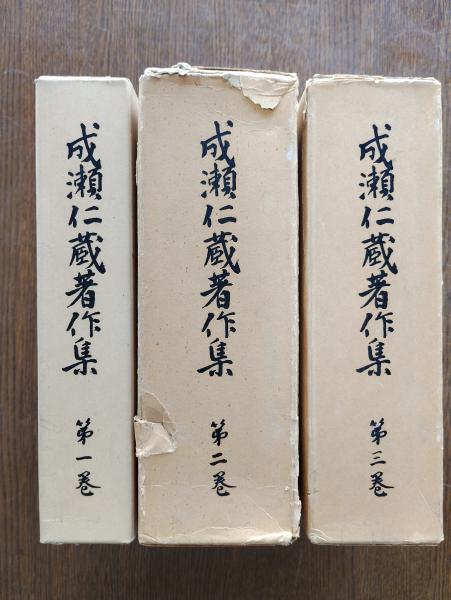 成瀬仁蔵著作集
第一巻
成瀬仁蔵著作集
第二巻
成瀬仁蔵著作集
第三巻